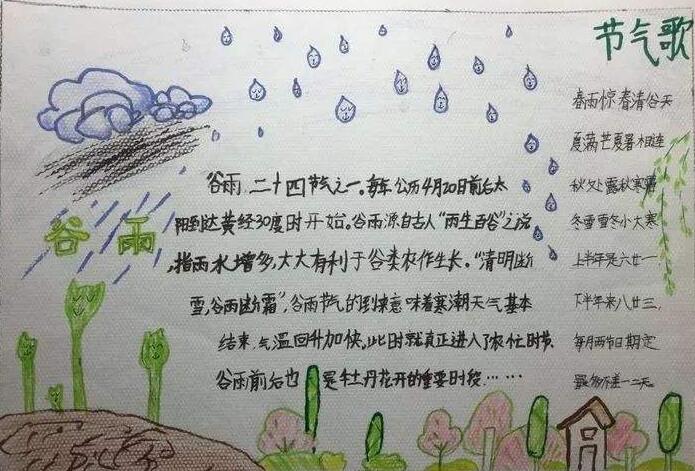 节气歌
春雨惊春清谷天
夏满芒夏暑相连
秋处露秋寒霜
冬雪雪冬小大寒
上半年是六廿一
下半年来八廿三
每月两节日期定
最多不差一二天。
谷雨
谷雨,二十四节气之一。每年公历4月20日前后太
阳到达黄经30度时开始。谷雨源自古人“雨生百谷”之说
,指雨水增多,大大有利于谷类农作生长。“清明断
雪,谷雨断霜”,谷雨节气的到来意味着寒潮天气基本
结束,气温回升加快,此时就真正进入了农忙时节.
谷雨前后也是牡丹花开的重要时段……